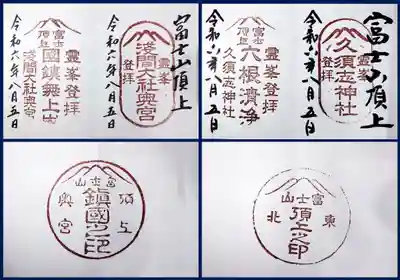 富士山頂上
霊峯登拝
浅間大社奥宮
令和六年八月五日
富士頂上
霊峯登拝
國鎮舞上
浅間大社奥宮
令和六年八月五日
富士山頂上
霊峯登拝
久須志神社
令和六年八月五日
富士頂上
霊峯登拝
六根清浄
久須志神社
令和六年八月五日
富士山
頂上
鎮國之印
奥宮
富士山
東
頂上之印
北